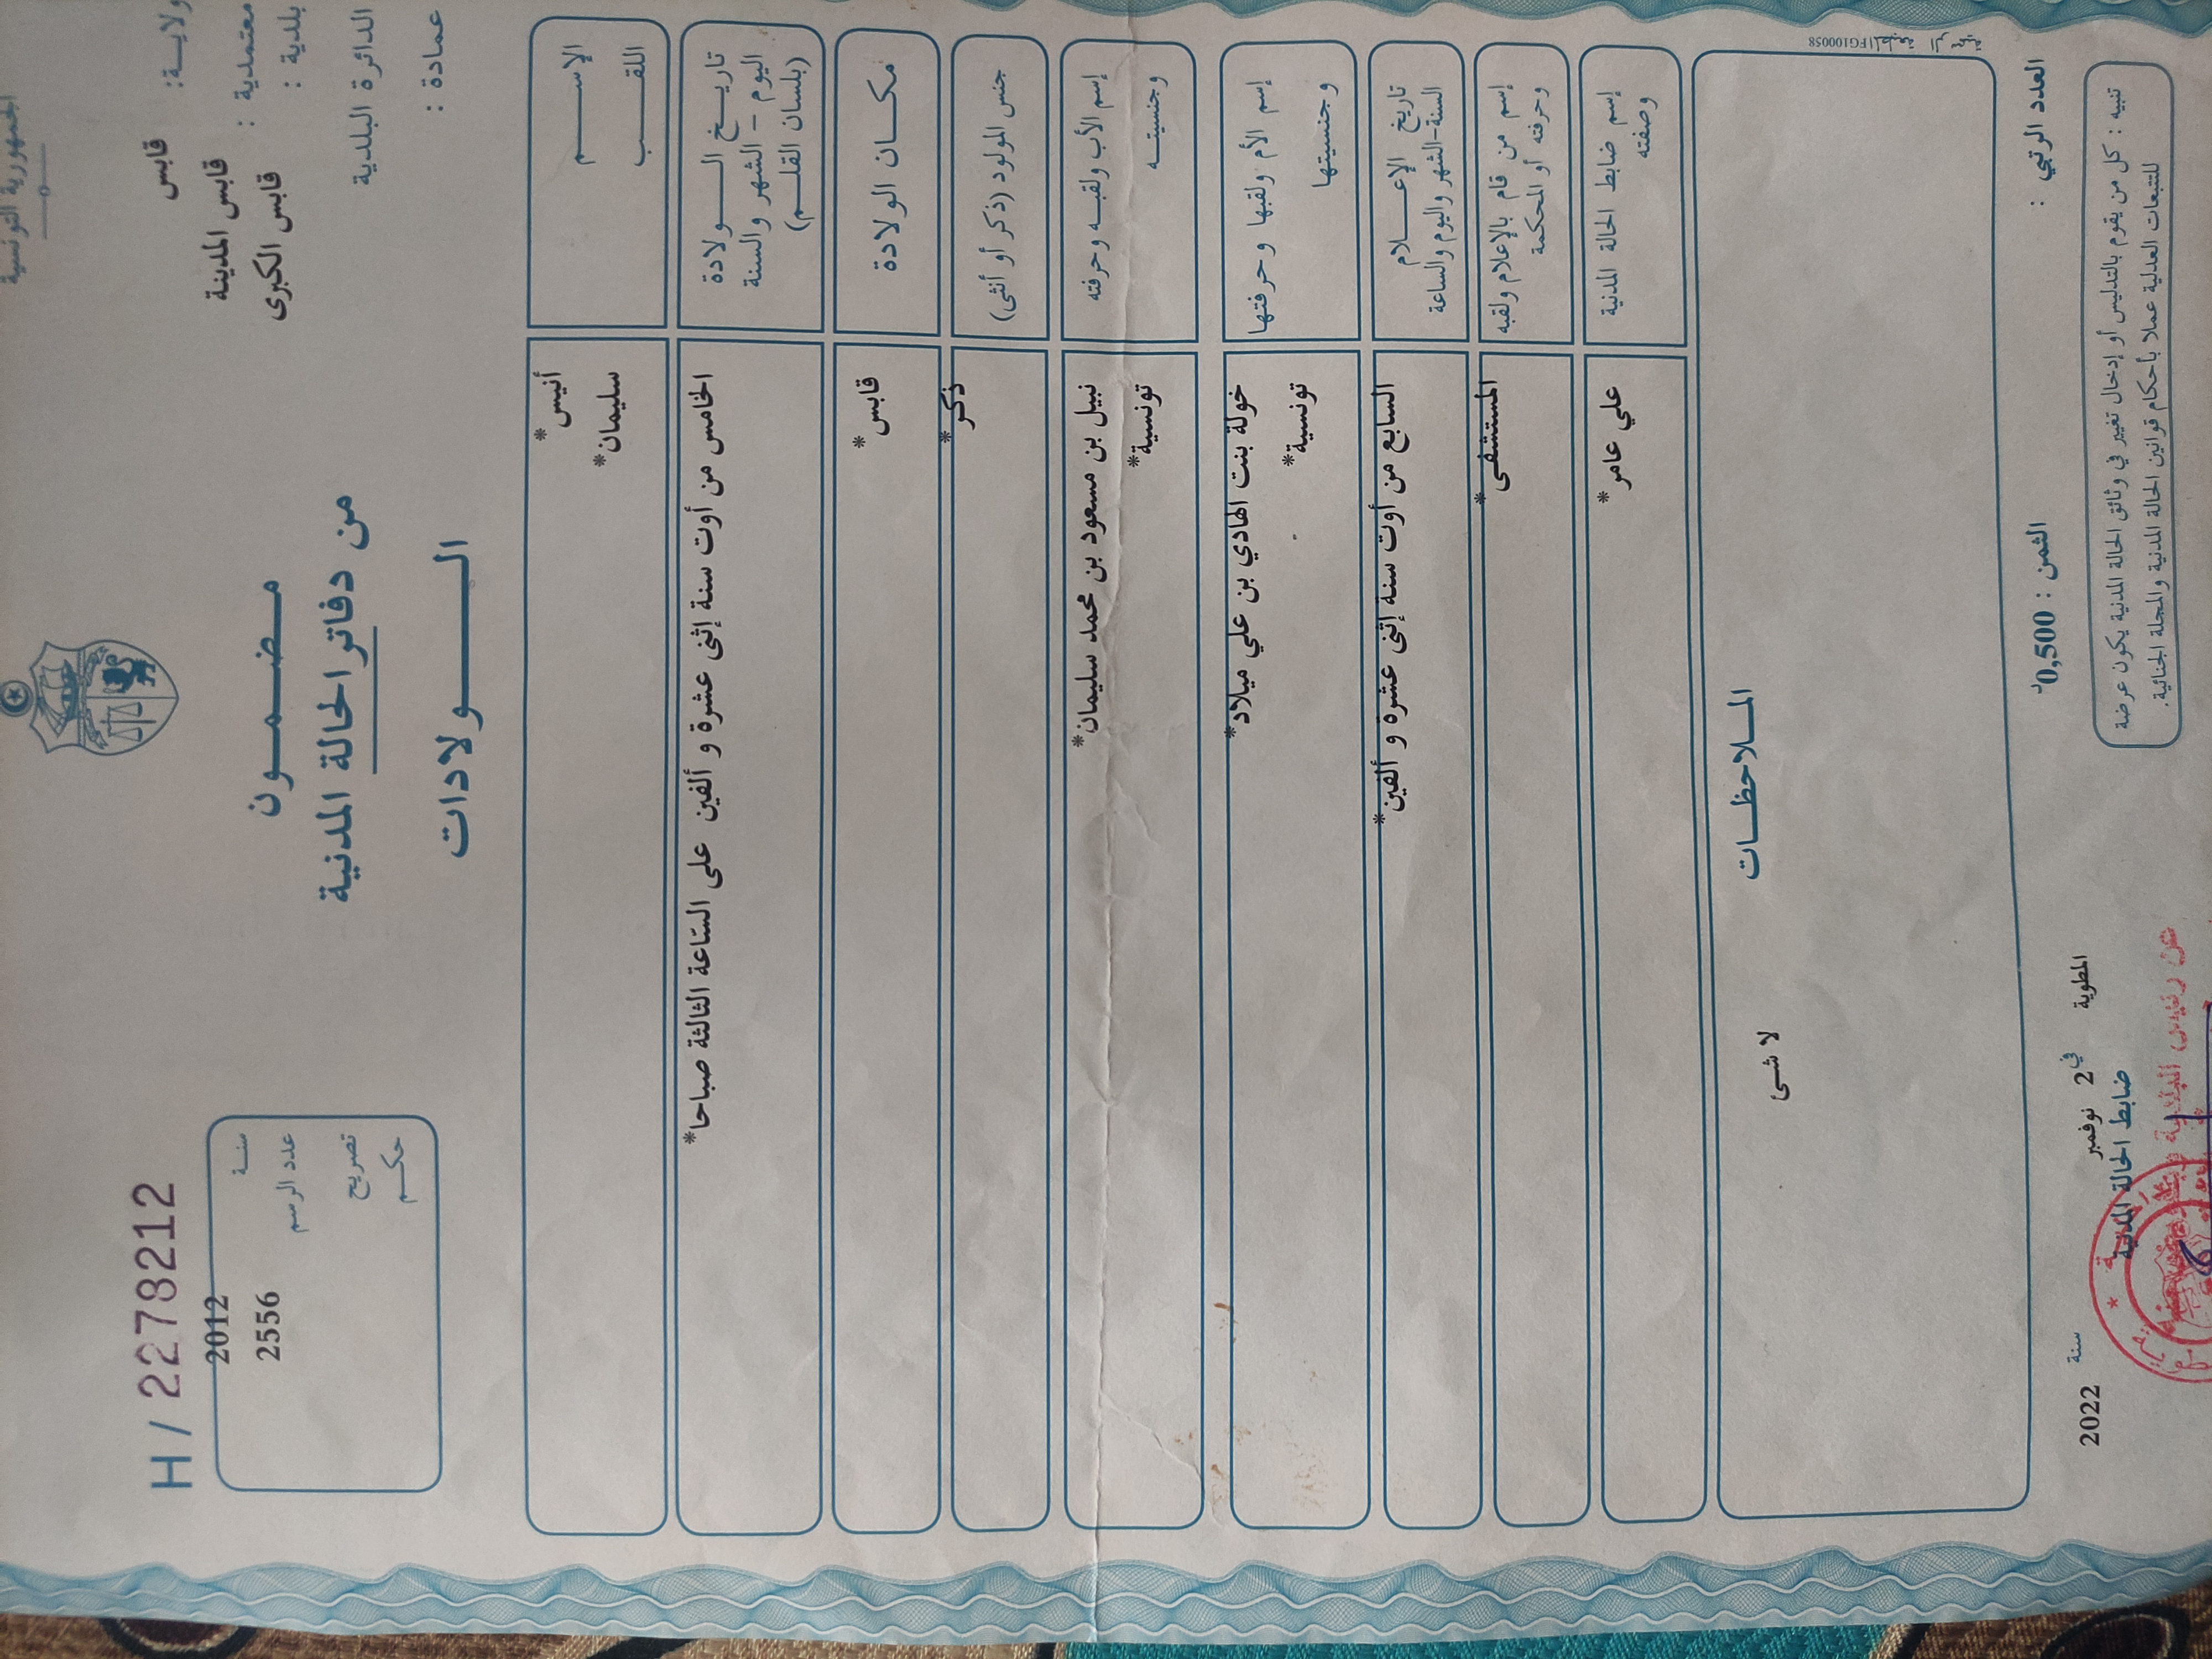 الجمهورية التونسية
ولايــة: قابس
معتمدية : قابس المدينة
بلدية : قابس الكبرى
الدائرة البلدية
عمادة :
H / 2278212
سنة 2012
عدد الرسم 2556
تصريح
حكم
مضمون
من دفاتر الحالة المدنية
الولادات
الإسم
أنيس*
اللقب
سليمان*
تاريخ الولادة
اليوم - الشهر والسنة
(بلسان القلم)
الخامس من أوت سنة إثنى عشرة و ألفين على الساعة الثالثة صباحا*
مكان الولادة
قابس*
جنس المولود (ذكر أو أنثى)
ذكر*
إسم الأب ولقبه وحرفته
نبيل بن مسعود بن محمد سليمان*
وجنسيته
تونسية*
إسم الأم ولقبها وحرفتها
خولة بنت الهادي بن علي ميلاد*
وجنسيتها
تونسية*
تاريخ الإعلام
السنة-الشهر واليوم والساعة
السابع من أوت سنة إثنى عشرة و ألفين*
إسم من قام بالإعلام ولقبه
وحرفته أو المحكمة
المستشفى*
إسم ضابط الحالة المدنية
وصفته
علي عامر*
الملاحظات
لا شئ
FG100058
العدد الرتبي :
الثمن : 0,500د
المطوية في 2 نوفمبر سنة 2022
ضابط الحالة المدنية
عن رئيس البلدية
تنبيه : كل من يقوم بالتدليس أو إدخال تغيير في وثائق الحالة المدنية يكون عرضة
للتتبعات العدلية عملا بأحكام قوانين الحالة المدنية والمجلة الجنائية.